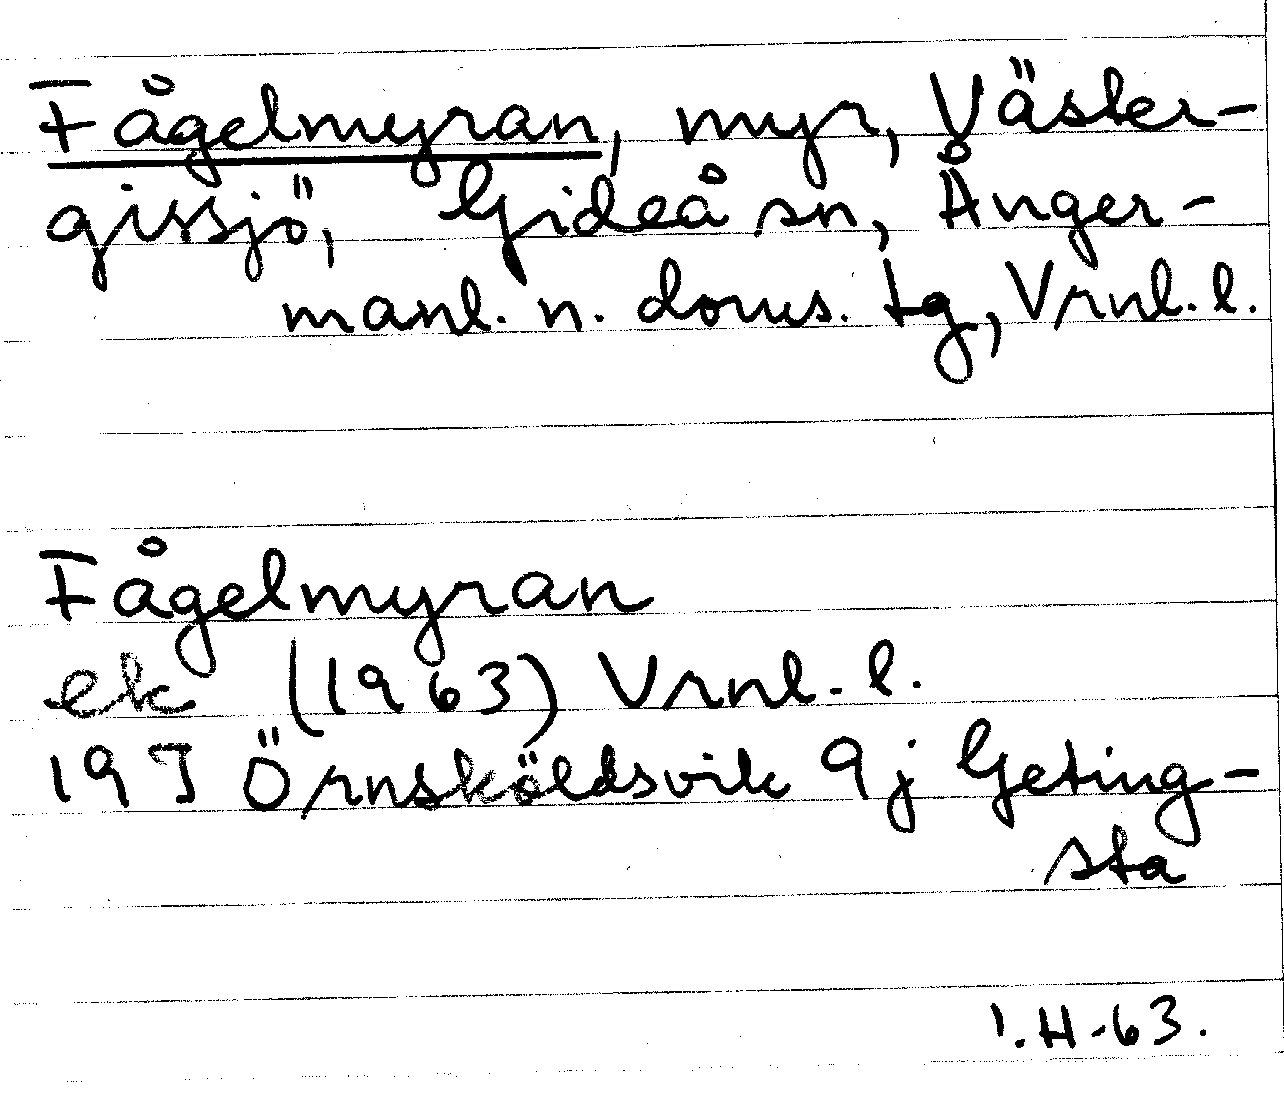 Fågelmyran, myr, Väster-
gissjö, Gideå sn, Ånger-
manl. n. doms. tg, Vrnl. l.
Fågelmyran
ek (1963) Vrnl. l.
19 J Örnsköldsvik 9j Geting-
sta
I.H-63.